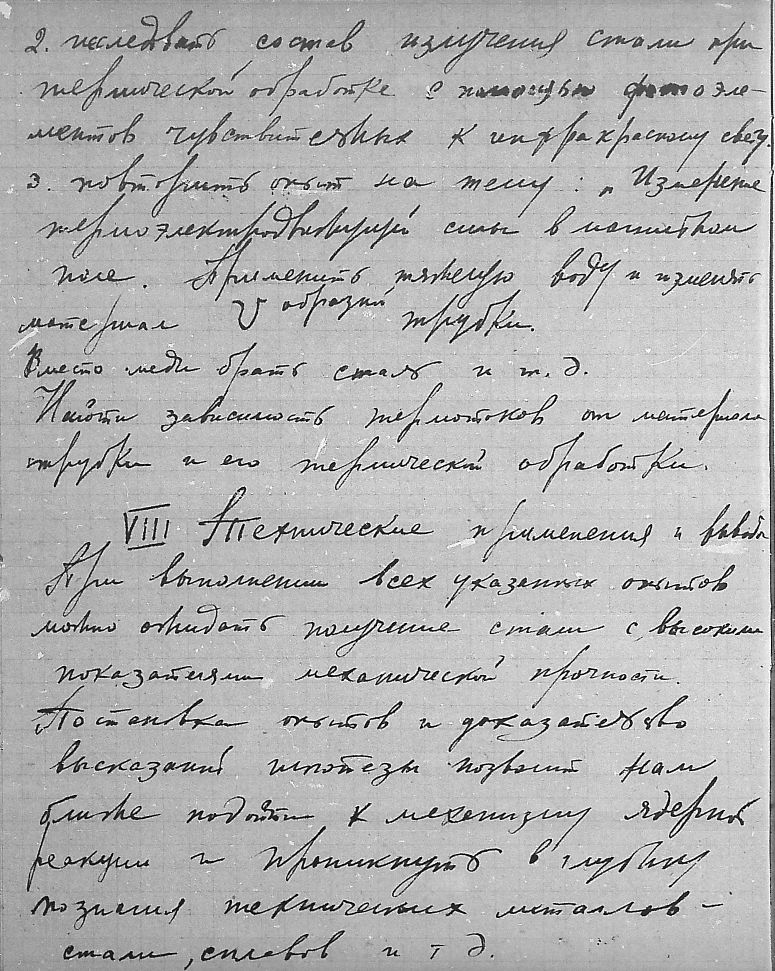 2. исследовать состав излучения стали при
термической обработке с помощью фотоэле-
ментов чувствительных к инфракрасному свету.
3. повторить опыт на тему: „Измерение
термоэлектродвижущей силы в магнитном
поле. Применить тяжелую воду и изменять
материал U образной трубки.
Вместо меди брать сталь и т. д.
Найти зависимость термотоков от материала
трубки и его термической обработки.
VIII Технические применения и выводы
При выполнении всех указанных опытов
можно ожидать получение стали с высокими
показателями механической прочности.
Постановка опытов и доказательство
высказанной гипотезы позволит нам
ближе подойти к механизму ядерной
реакции и проникнуть в глубину
познания технических металлов -
стали, сплавов и т д.